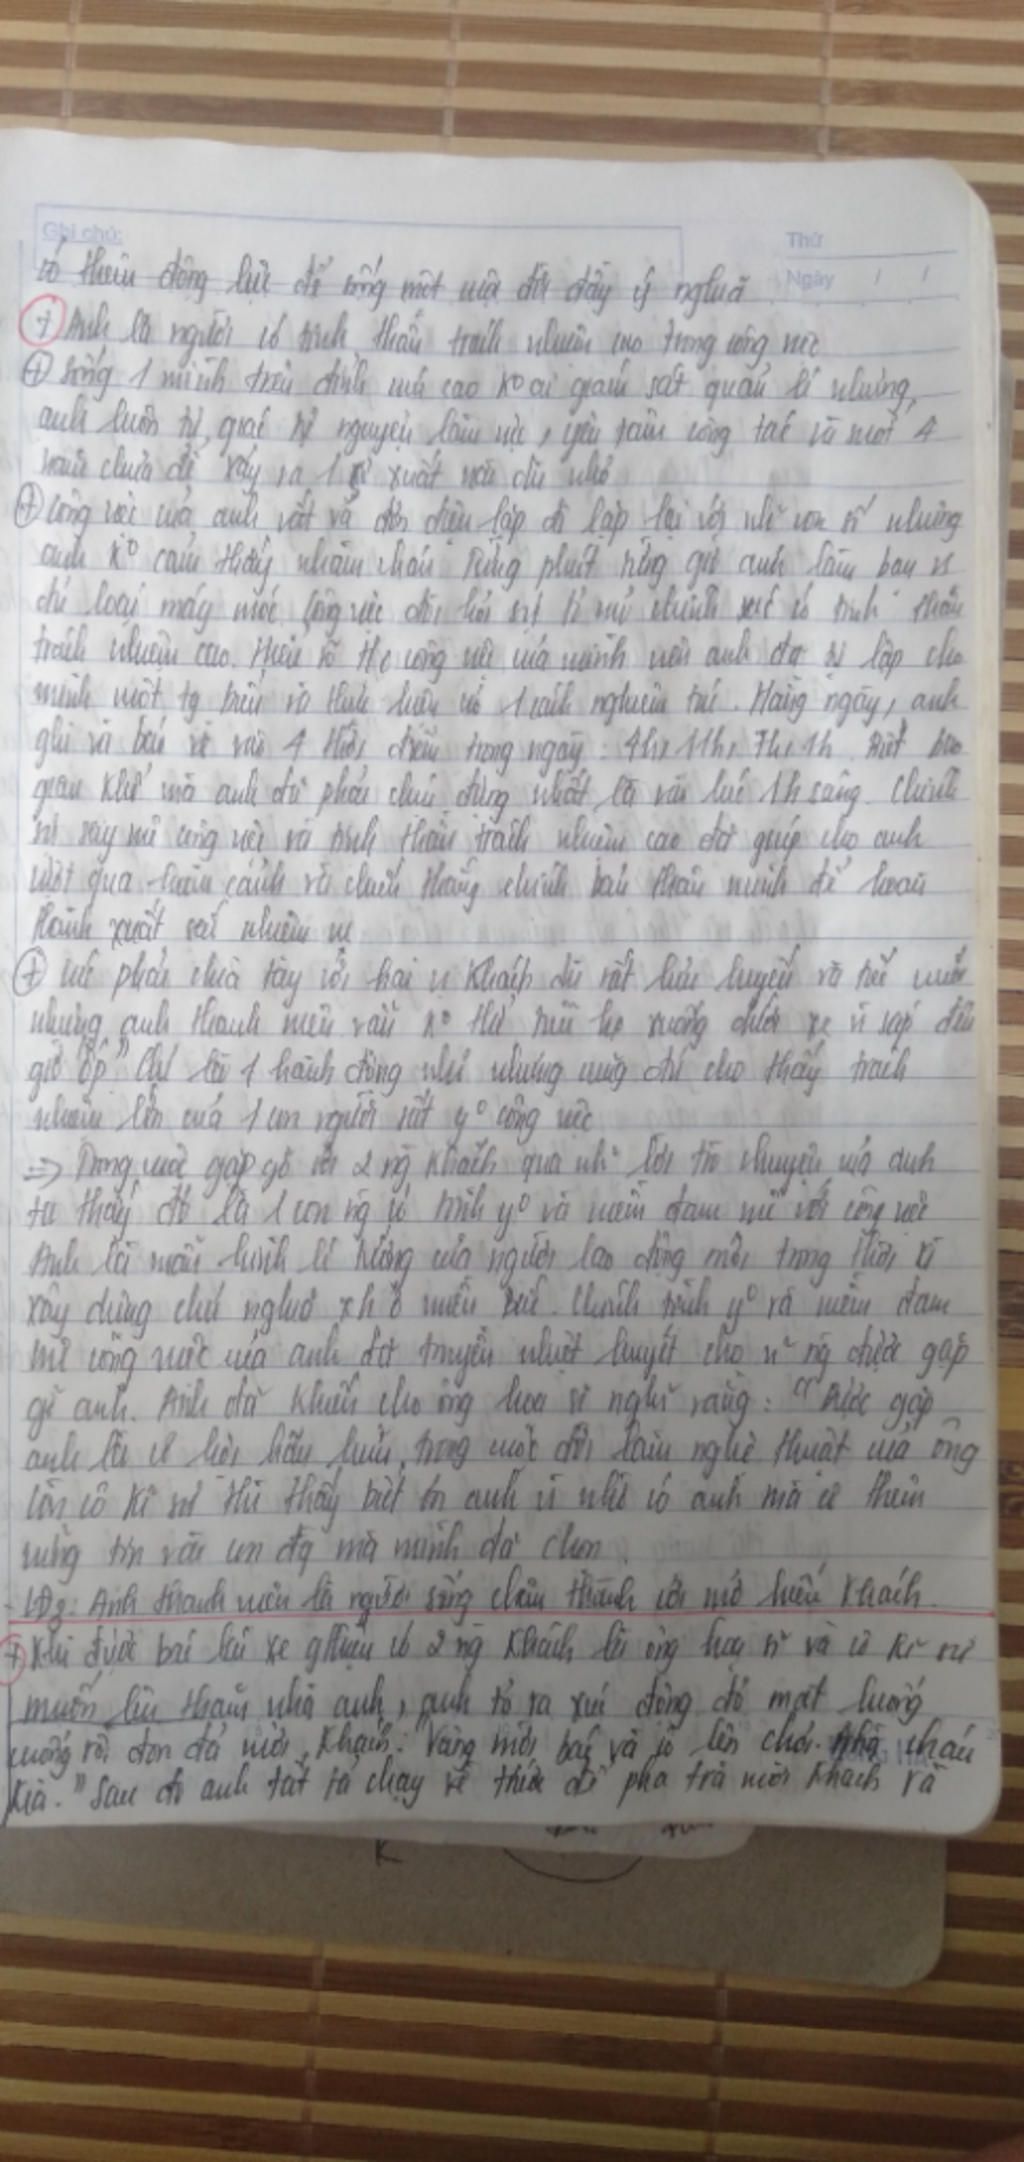 Ghi chú:
Thứ
Ngày / /
có thêm động lực để sống một cuộc đời đầy ý nghĩa
+ Anh là người có tinh thần trách nhiệm cao trong công việc
+ Sống 1 mình trên đỉnh núi cao k° ai giám sát quản lí nhưng
anh luôn tự giác tự nguyện làm việc, yêu
chưa để xảy ra 1 xuất nào dù nhỏ
+ Công việc của anh vất vả đơn điệu lặp đi lặp lại với những con số nhưng
anh k° cảm thấy nhàm chán từng phút từng giờ anh làm bạn vs
chỉ loại máy móc. Công việc đòi hỏi sự tỉ mỉ chính xác có tinh thần
trách nhiệm cao. Hiểu rõ công việc của mình nên anh đã lập cho
mình một và thực hiện nó 1 cách nghiêm túc. Hàng ngày, anh
ghi và báo về vào 4 thời điểm trong ngày: 4h, 11h, 7h, 1h. Biết bao
gian khổ mà anh đã phải chịu đựng nhất là vào lúc 1h sáng. Chính
sự say mê công việc và tinh thần trách nhiệm cao đã giúp cho anh
vượt qua hoàn cảnh và chiến thắng chính bản thân mình để hoàn
thành xuất sắc nhiệm vụ
+ phải chia tay với hai vị khách dù rất lưu luyến và tiếc nuối
nhưng anh thanh niên vẫn k° thể tiễn họ xuống dưới xe vì sắp đến
giờ "ốp". Chỉ là 1 hành động nhỏ nhưng cũng đủ cho thấy trách
nhiệm lớn của 1 con người rất y° công việc
=> Trong cuộc gặp gỡ với 2 ng khách qua lời trò chuyện của anh
ta thấy đó là 1 con ng có tình y° và niềm đam mê với công việc
Anh là mẫu hình lí tưởng của người lao động mới trong thời kì
xây dựng chủ nghĩa xh ở miền Bắc. Chính tình y° và niềm đam
mê công việc của anh đã truyền nhiệt huyết cho ng được gặp
gỡ anh. Anh đã khiến cho ông họa sĩ nghĩ rằng: "Được gặp
anh là cơ hội hãn hữu trong cuộc đời làm nghệ thuật của ông
Còn cô kĩ sư thì thấy biết ơn anh vì nhờ có anh mà cô thêm
vững tin vào con đg mà mình đã chọn.
- LĐ3: Anh thanh niên là người sống chân thành cởi mở hiếu khách.
+ Khi được bác lái xe có 2 ng khách là ông họa sĩ và cô kĩ sư
muốn lên thăm nhà anh, anh tỏ ra xúc động đỏ mặt luống
cuống rồi đon đả mời khách: "Vâng mời bác và cô lên chơi. Nhà cháu
kia." Sau đó anh tất tả chạy về trước để pha trà mời khách và